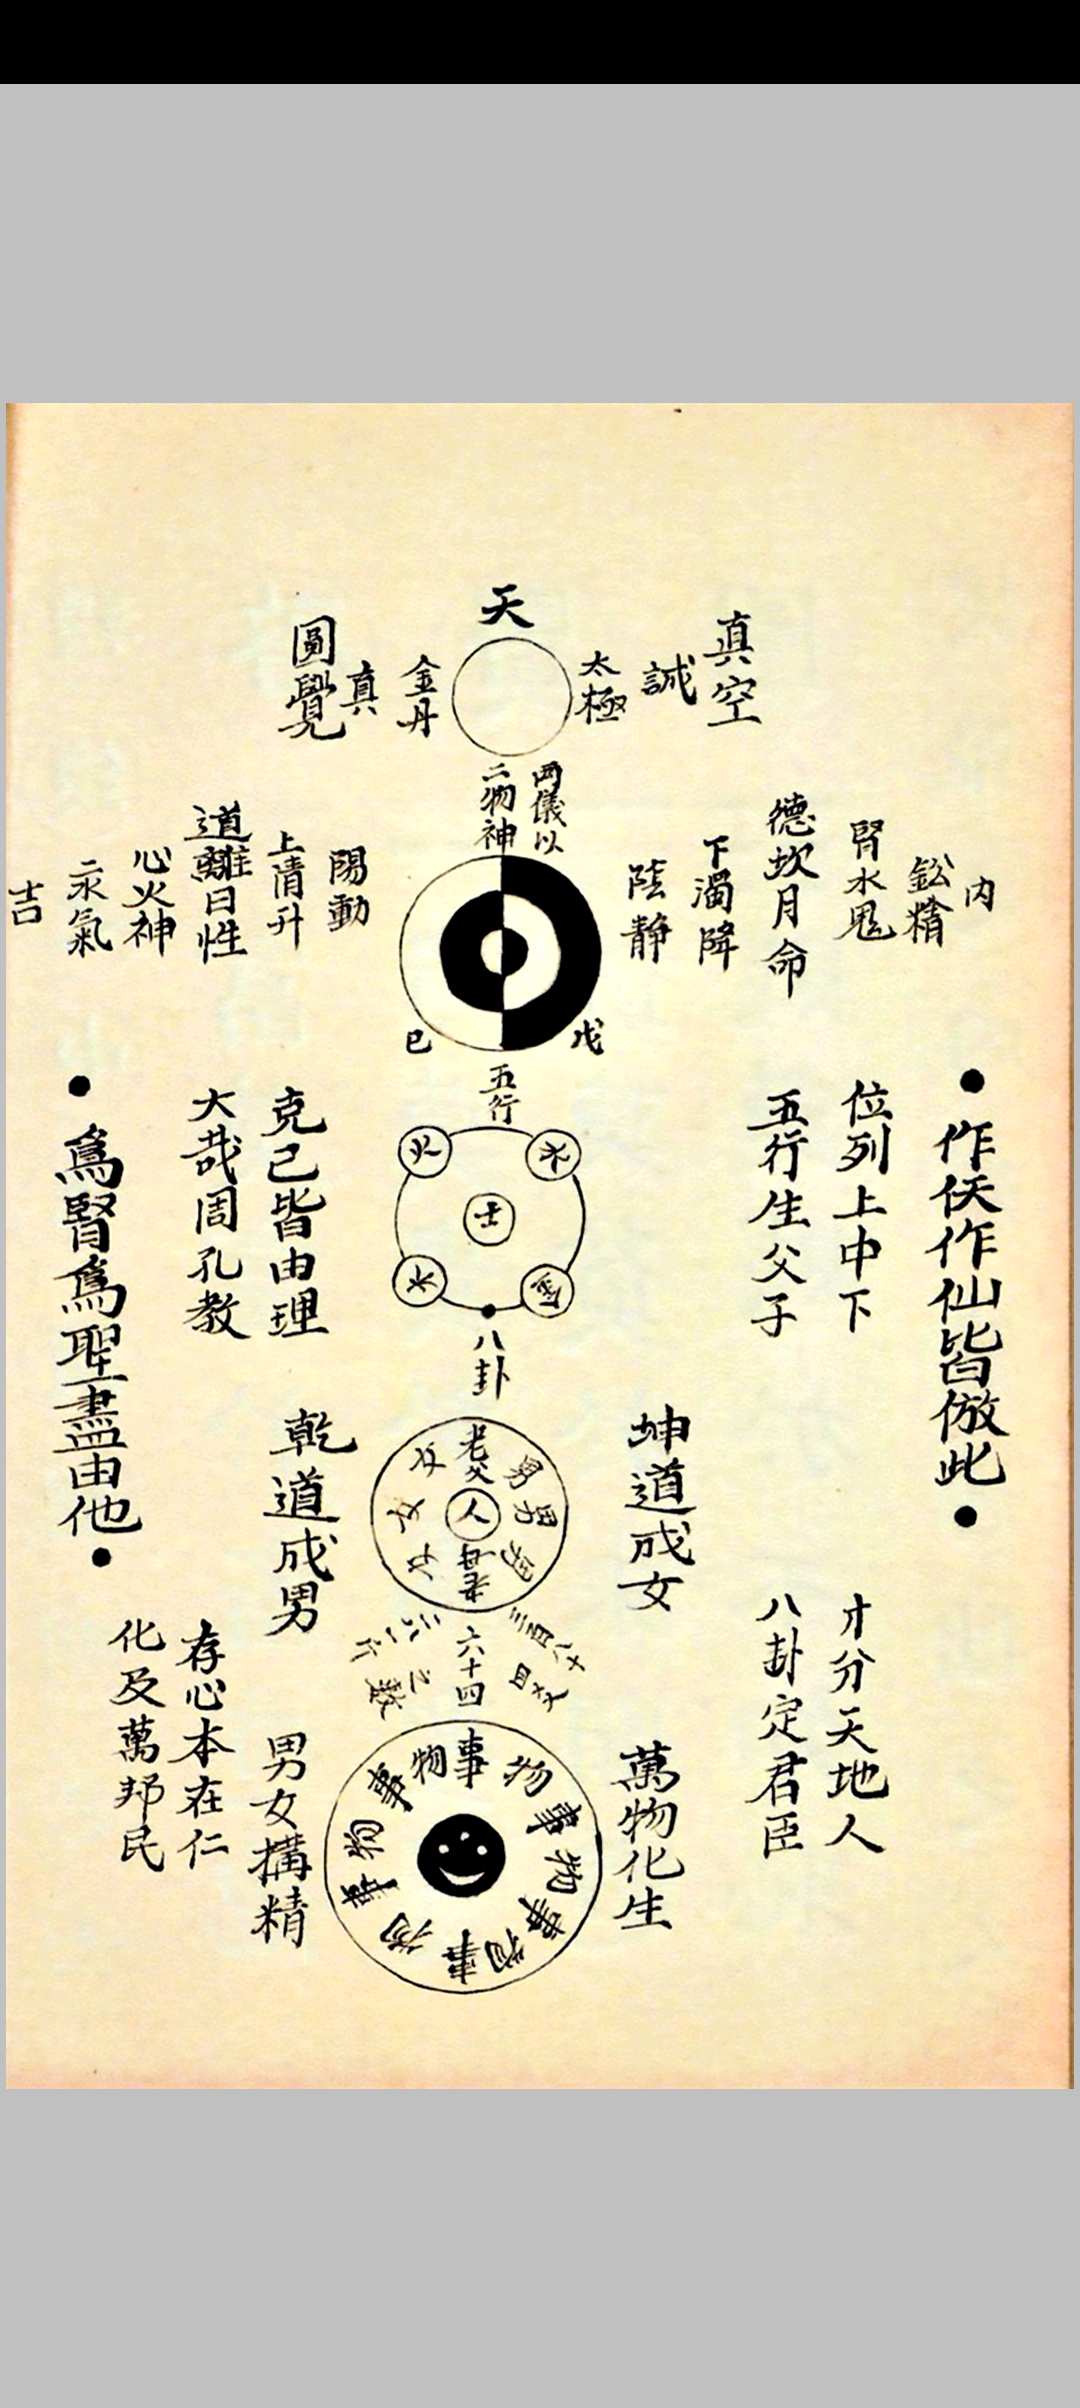 天
真空
誠
太極
金丹
真
圓覺
兩儀以
二物神
内
鉛精
腎水鬼
德坎月命
下濁降
陰静
陽動
上清升
道離日性
心火神
汞氣
吉
戊
己
五行
火
水
土
金
●作仸作仙皆倣此●
位列上中下
五行生父子
克己皆由理
大哉周孔教
●爲賢爲聖盡由他●
八卦
老父
男
男
男
老母
女
女
女
人
坤道成女
乾道成男
三百八十
四爻
六十四
之數
才分天地人
八卦定君臣
萬物化生
男女搆精
存心本在仁
化及萬邦民
事物事物事物事物事物事物